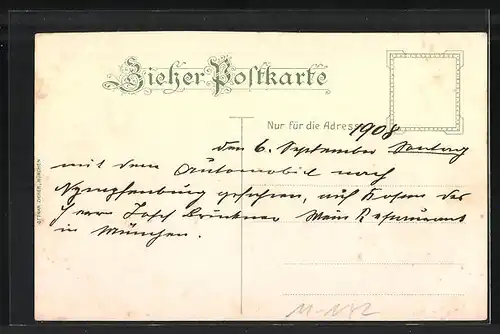 Zieher Postkarte
Nur für die Adresse
1908
den 6. September Sontag
mit dem Automobil nach
Nympfenburg gefahren, auf Kosten des
Herrn Josef Bruckner Wein Restaurant
in München.
OTTMAR ZIEHER, MÜNCHEN